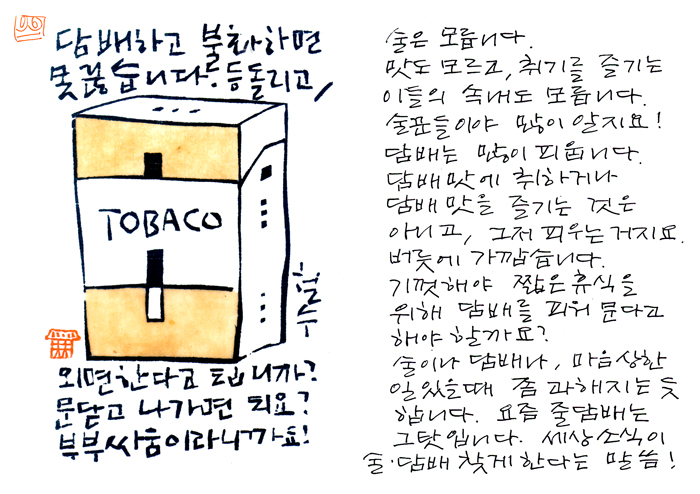 담배하고 불화하면
못끊습니다. 등돌리고,
TOBACO
철수
외면한다고 됩니까?
문닫고 나가면 되요?
부부싸움이라니까요!
술은 모릅니다.
맛도 모르고, 취기를 즐기는
이들의 속내도 모릅니다.
술꾼들이야 많이 알지요!
담배는 많이 피웁니다.
담배맛에 취하거나
담배 맛을 즐기는 것은
아니고, 그저 피우는거지요.
버릇에 가깝습니다.
기껏해야 짧은 휴식을
위해 담배를 피워 문다고
해야 할까요?
술이나 담배나, 마음상한
일 있을때 좀 과해지는 듯
합니다. 요즘 줄담배는
그탓입니다. 세상소식이
술·담배 찾게한다는 말씀!